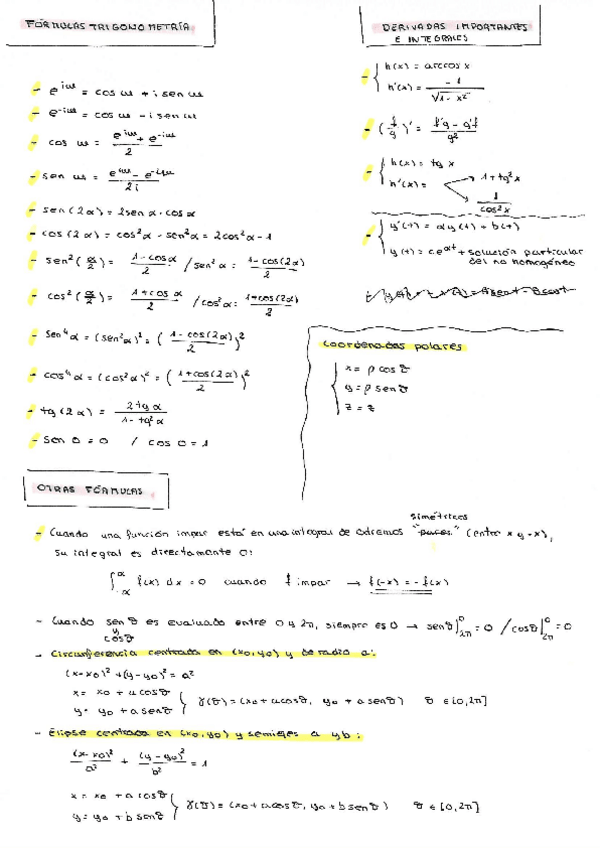 FÓRMULAS TRIGONOMETRÍA
- e^{iω} = cos ω + i sen ω
- e^{-iω} = cos ω - i sen ω
- cos ω = (e^{iω} + e^{-iω})/2
- sen ω = (e^{iω} - e^{-iω})/2i
- sen(2α) = 2sen α · cos α
- cos(2α) = cos²α - sen²α = 2cos²α - 1
- sen²(α/2) = (1 - cos α)/2 / sen²α = (1 - cos(2α))/2
- cos²(α/2) = (1 + cos α)/2 / cos²α = (1 + cos(2α))/2
- sen⁴α = (sen²α)² = ((1 - cos(2α))/2)²
- cos⁴α = (cos²α)² = ((1 + cos(2α))/2)²
- tg(2α) = 2tg α/(1 - tg²α)
- sen 0 = 0 / cos 0 = 1
DERIVADAS IMPORTANTES
E INTEGRALES
- { h(x) = arccos x
h'(x) = -1/√(1 - x²)
- (f/g)' = (f'g - g'f)/g²
- { h(x) = tg x
h'(x) = → 1 + tg²x
→ 1/cos²x
- { y'(t) = αy(t) + b(t)
y(t) = ce^{αt} + solución particular
del no homogéneo
Coordenadas polares
x = ρ cos θ
y = ρ sen θ
z = z
OTRAS FÓRMULAS
simétricos
- Cuando una función impar está en una integral de extremos "pares" (entre x y -x),
su integral es directamente 0:
∫_{-α}^{α} f(x) dx = 0 cuando f impar → f(-x) = -f(x)
- Cuando sen θ es evaluado entre 0 y 2π, siempre es 0 → sen θ]_{2π}^{0} = 0 / cos θ]_{2π}^{0} = 0
y
cos θ
- Circunferencia centrada en (x₀, y₀) y de radio a:
(x - x₀)² + (y - y₀)² = a²
x = x₀ + a cos θ
y = y₀ + a sen θ } γ(θ) = (x₀ + a cos θ, y₀ + a sen θ) θ ∈ [0, 2π]
- Elipse centrada en (x₀, y₀) y semiejes a y b:
(x - x₀)²/a² + (y - y₀)²/b² = 1
x = x₀ + a cos θ
y = y₀ + b sen θ } γ(θ) = (x₀ + a cos θ, y₀ + b sen θ) θ ∈ [0, 2π]